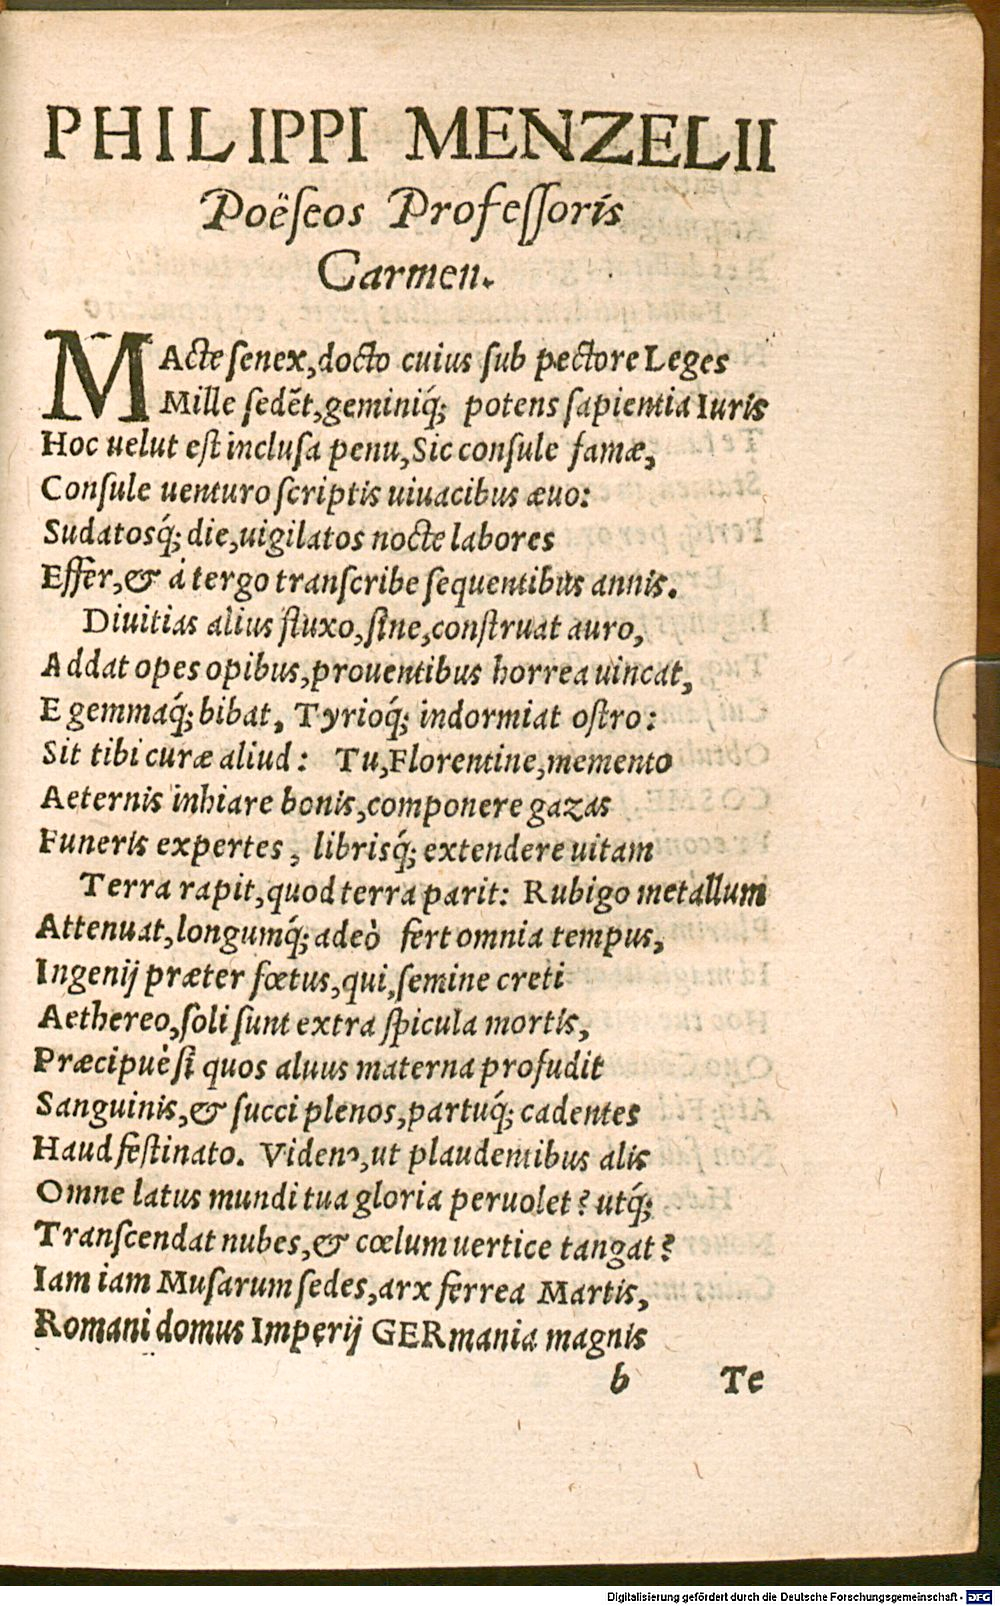 PHILIPPI MENZELII
Poëſeos Profeſſoris
Carmen.
MActe ſenex, docto cuius ſub pectore Leges
Mille ſedēt, geminiq́; potens ſapientia Iuris
Hoc uelut eſt incluſa penu, Sic conſule famæ,
Conſule uenturo ſcriptis uiuacibus æuo:
Sudatosq́; die, uigilatos nocte labores
Effer, & á tergo tranſcribe ſequentibus annis.
Diuitias alius fluxo, ſine, conſtruat auro,
Addat opes opibus, prouentibus horrea uincat,
E gemmaq́; bibat, Tyrioq́; indormiat oſtro:
Sit tibi curæ aliud: Tu, Florentine, memento
Aeternis inhiare bonis, componere gazas
Funeris expertes, librisq́; extendere uitam
Terra rapit, quod terra parit: Rubigo metallum
Attenuat, longumq́; adeò fert omnia tempus,
Ingenij præter fœtus, qui, ſemine creti
Aethereo, ſoli ſunt extra ſpicula mortis,
Præcipuè ſi quos aluus materna profudit
Sanguinis, & ſucci plenos, partuq́; cadentes
Haud feſtinato. Viden', ut plaudentibus alis
Omne latus mundi tua gloria peruolet? utq́;
Tranſcendat nubes, & cœlum uertice tangat?
Iam iam Muſarum ſedes, arx ferrea Martis,
Romani domus Imperij GERmania magnis
b Te
Digitalisierung gefördert durch die Deutsche Forschungsgemeinschaft - DFG